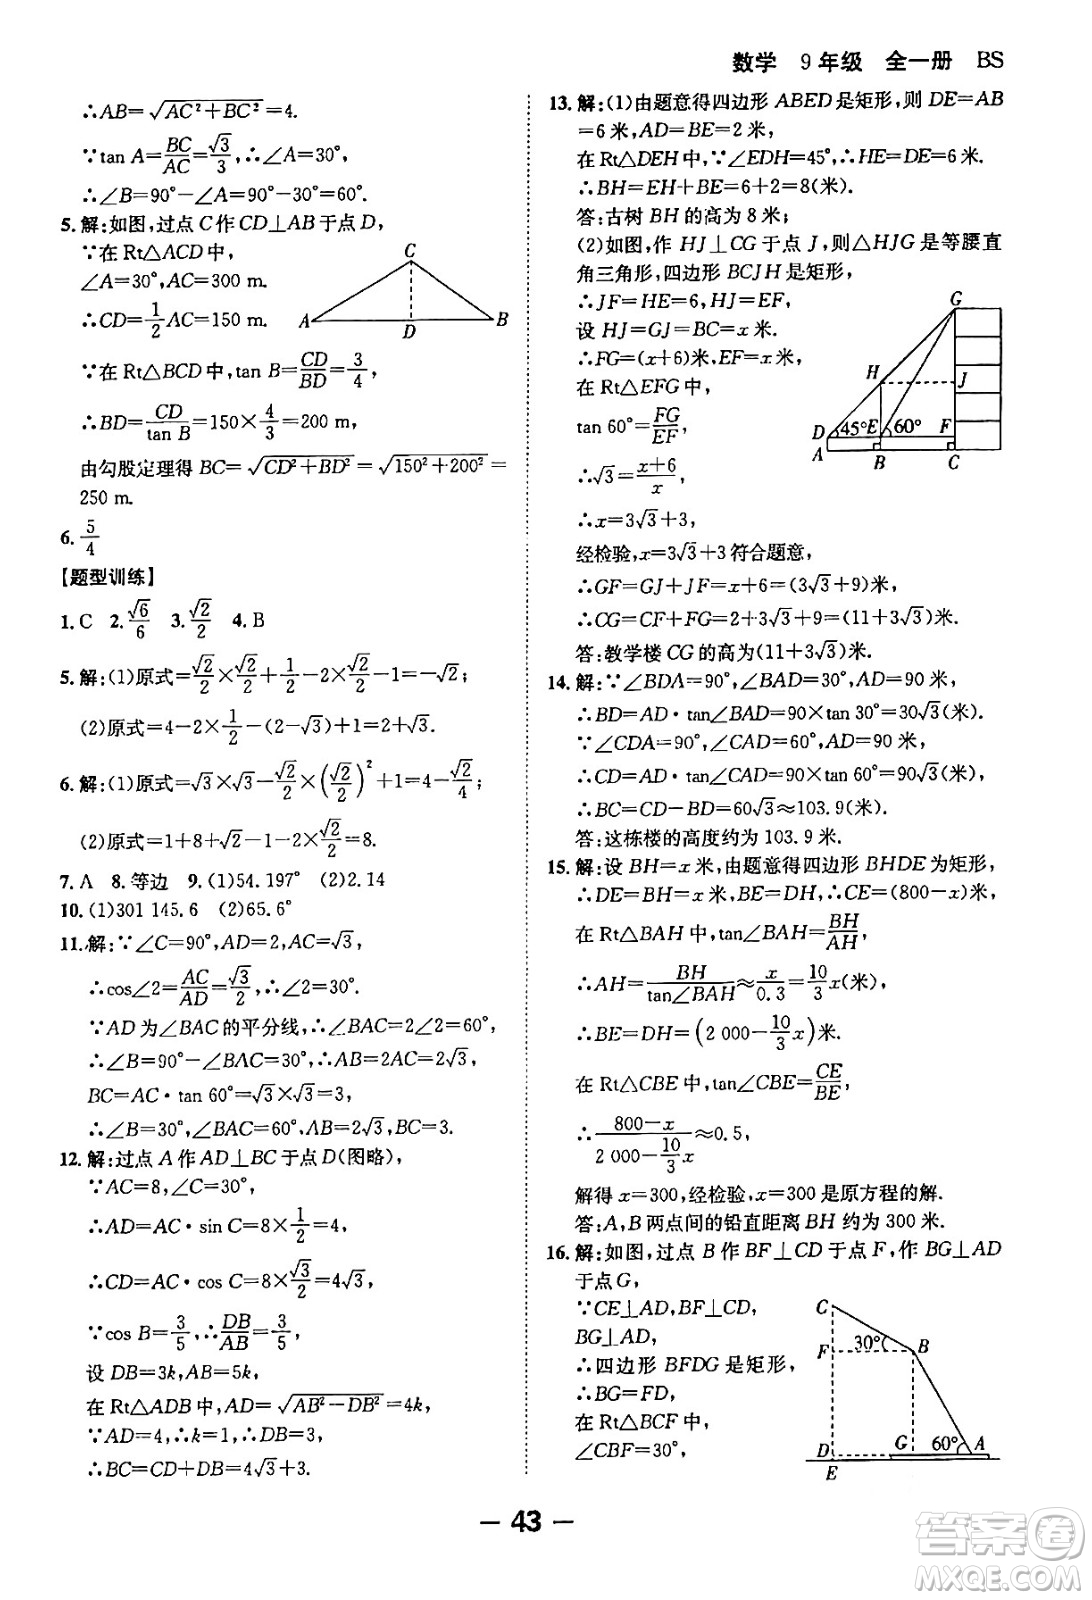 数学 9年级 全一册 BS
∴AB=√(AC²+BC²)=4.
∵tan A=BC/AC=√3/3,∴∠A=30°,
∴∠B=90°-∠A=90°-30°=60°.
5.解:如图,过点C作CD⊥AB于点D,
∵在Rt△ACD中,
∠A=30°,AC=300 m.
∴CD=1/2AC=150 m.
∵在Rt△BCD中,tan B=CD/BD=3/4,
∴BD=CD/tan B=150×4/3=200 m,
由勾股定理得BC=√(CD²+BD²)=√(150²+200²)=
250 m.
C
A
D
B
6. 5/4
【题型训练】
1.C 2.√6/6 3.√2/2 4.B
5.解:(1)原式=√2/2×√2/2+1/2-2×√2/2=1-√2;
(2)原式=4-2×1/2-(2-√3)+1=2+√3.
6.解:(1)原式=√3×√3-√2/2×(√2/2)²+1=4-√2/4;
(2)原式=1+8+√2-1-2×√2/2=8.
7.A 8.等边 9.(1)54.197° (2)2.14
10.(1)301 145.6 (2)65.6°
11.解:∵∠C=90°,AD=2,AC=√3,
∴cos∠2=AC/AD=√3/2,∴∠2=30°.
∵AD为∠BAC的平分线,∴∠BAC=2∠2=60°,
∴∠B=90°-∠BAC=30°,∴AB=2AC=2√3,
BC=AC·tan 60°=√3×√3=3,
∴∠B=30°,∠BAC=60°,AB=2√3,BC=3.
12.解:过点A作AD⊥BC于点D(图略),
∵AC=8,∠C=30°,
∴AD=AC·sin C=8×1/2=4,
∴CD=AC·cos C=8×√3/2=4√3,
∵cos B=3/5,∴DB/AB=3/5,
设DB=3k,AB=5k,
在Rt△ADB中,AD=√(AB²-DB²)=4k,
∵AD=4,∴k=1,∴DB=3,
∴BC=CD+DB=4√3+3.
13.解:(1)由题意得四边形ABED是矩形,则DE=AB
=6米,AD=BE=2米,
在Rt△DEH中,∵∠EDH=45°,∴HE=DE=6米.
∴BH=EH+BE=6+2=8(米).
答:古树BH的高为8米;
(2)如图,作HJ⊥CG于点J,则△HJG是等腰直
角三角形,四边形BCJH是矩形,
∴JF=HE=6,HJ=EF,
设HJ=GJ=BC=x米.
∴FG=(x+6)米,EF=x米,
在Rt△EFG中,
tan 60°=FG/EF,
∴√3=(x+6)/x,
∴x=3√3+3,
G
H
J
D 45°E 60° F
A B C
经检验,x=3√3+3符合题意,
∴GF=GJ+JF=x+6=(3√3+9)米,
∴CG=CF+FG=2+3√3+9=(11+3√3)米.
答:教学楼CG的高为(11+3√3)米.
14.解:∵∠BDA=90°,∠BAD=30°,AD=90米,
∴BD=AD·tan∠BAD=90×tan 30°=30√3(米).
∵∠CDA=90°,∠CAD=60°,AD=90米,
∴CD=AD·tan∠CAD=90×tan 60°=90√3(米).
∴BC=CD-BD=60√3≈103.9(米).
答:这栋楼的高度约为103.9米.
15.解:设BH=x米,由题意得四边形BHDE为矩形,
∴DE=BH=x米,BE=DH,∴CE=(800-x)米,
在Rt△BAH中,tan∠BAH=BH/AH,
∴AH=BH/tan∠BAH≈x/0.3=10/3x(米).
∴BE=DH=(2 000-10/3x)米.
在Rt△CBE中,tan∠CBE=CE/BE,
∴(800-x)/(2 000-10/3x)≈0.5,
解得x=300,经检验,x=300是原方程的解.
答:A,B两点间的铅直距离BH约为300米.
16.解:如图,过点B作BF⊥CD于点F,作BG⊥AD
于点G,
∵CE⊥AD,BF⊥CD,
BG⊥AD.
∴四边形BFDG是矩形,
∴BG=FD,
在Rt△BCF中,
∠CBF=30°,
C
30°
F
B
D
G
60°
A
E
— 43 —
答案卷
MXQE.COM